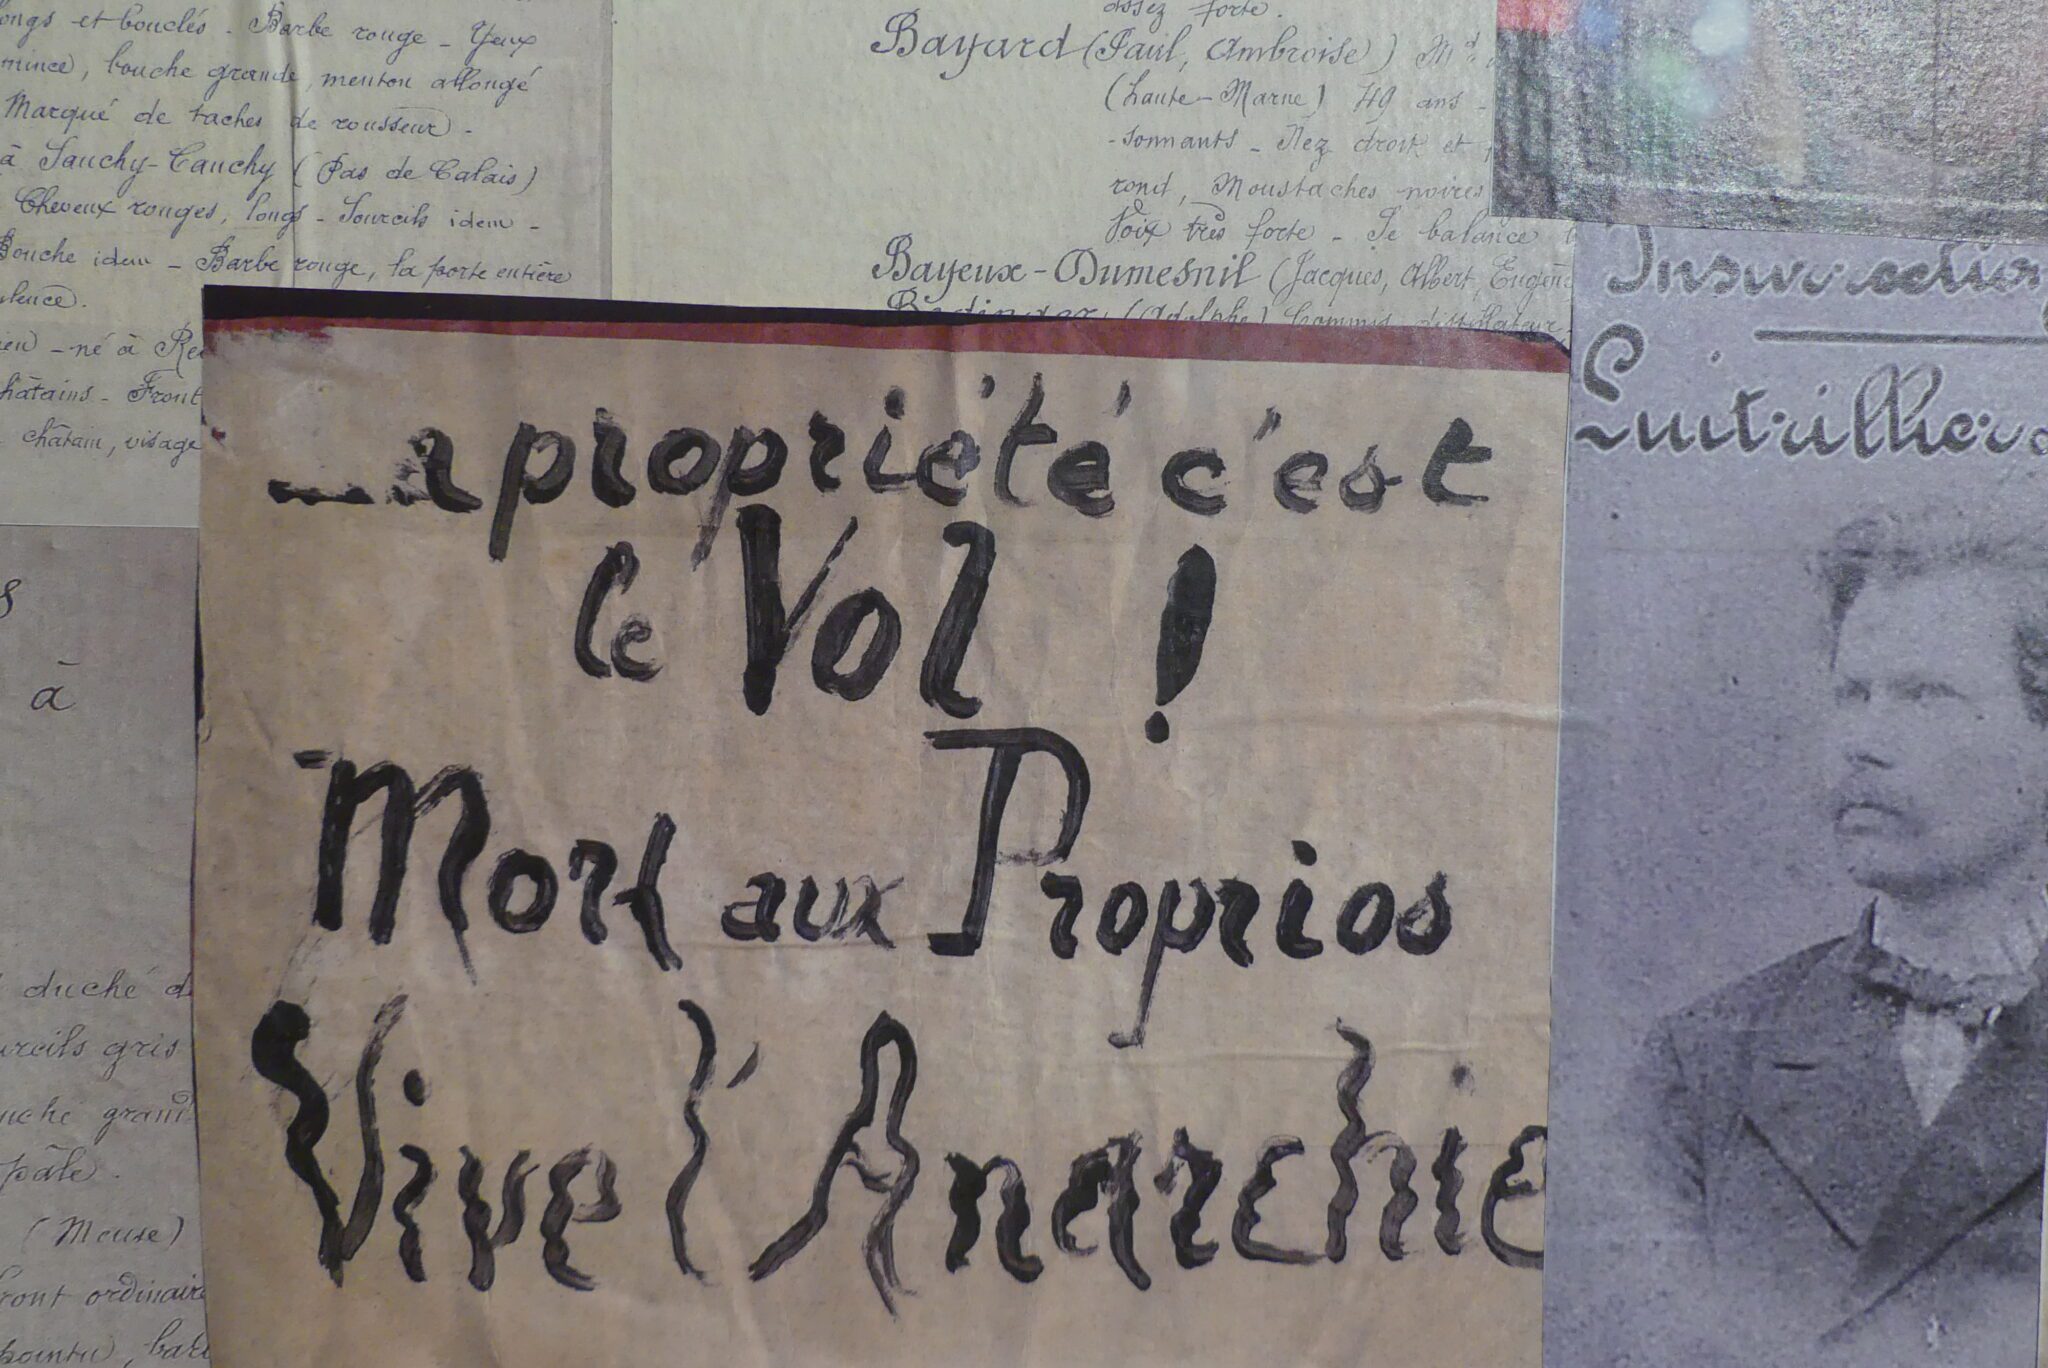 ongs et bouclés - Barbe rouge - Yeux
mince, bouche grande, menton allongé
Marqué de taches de rousseur -
à Sauchy-Cauchy (Pas de Calais)
Cheveux rouges, longs - Sourcils idem -
Bouche idem - Barbe rouge, la porte entière
né à
châtains - Front
châtain, visage
assez forte.
Bayard (Paul, Ambroise) Md
(haute-Marne) 49 ans -
-sonnants - Nez droit et
rond, Moustaches noires
Voix très forte - Se balance
Bayeux-Dumesnil (Jacques, Albert, Eugène
(Adolphe) Commis distillateur
Insurrection
La propriété c'est
le Vol !
Mort aux Proprios
Vive l'Anarchie
à
duché d
sourcils gris
bouche grand
pâle.
(Meuse)
front ordinaire
pointu, bar